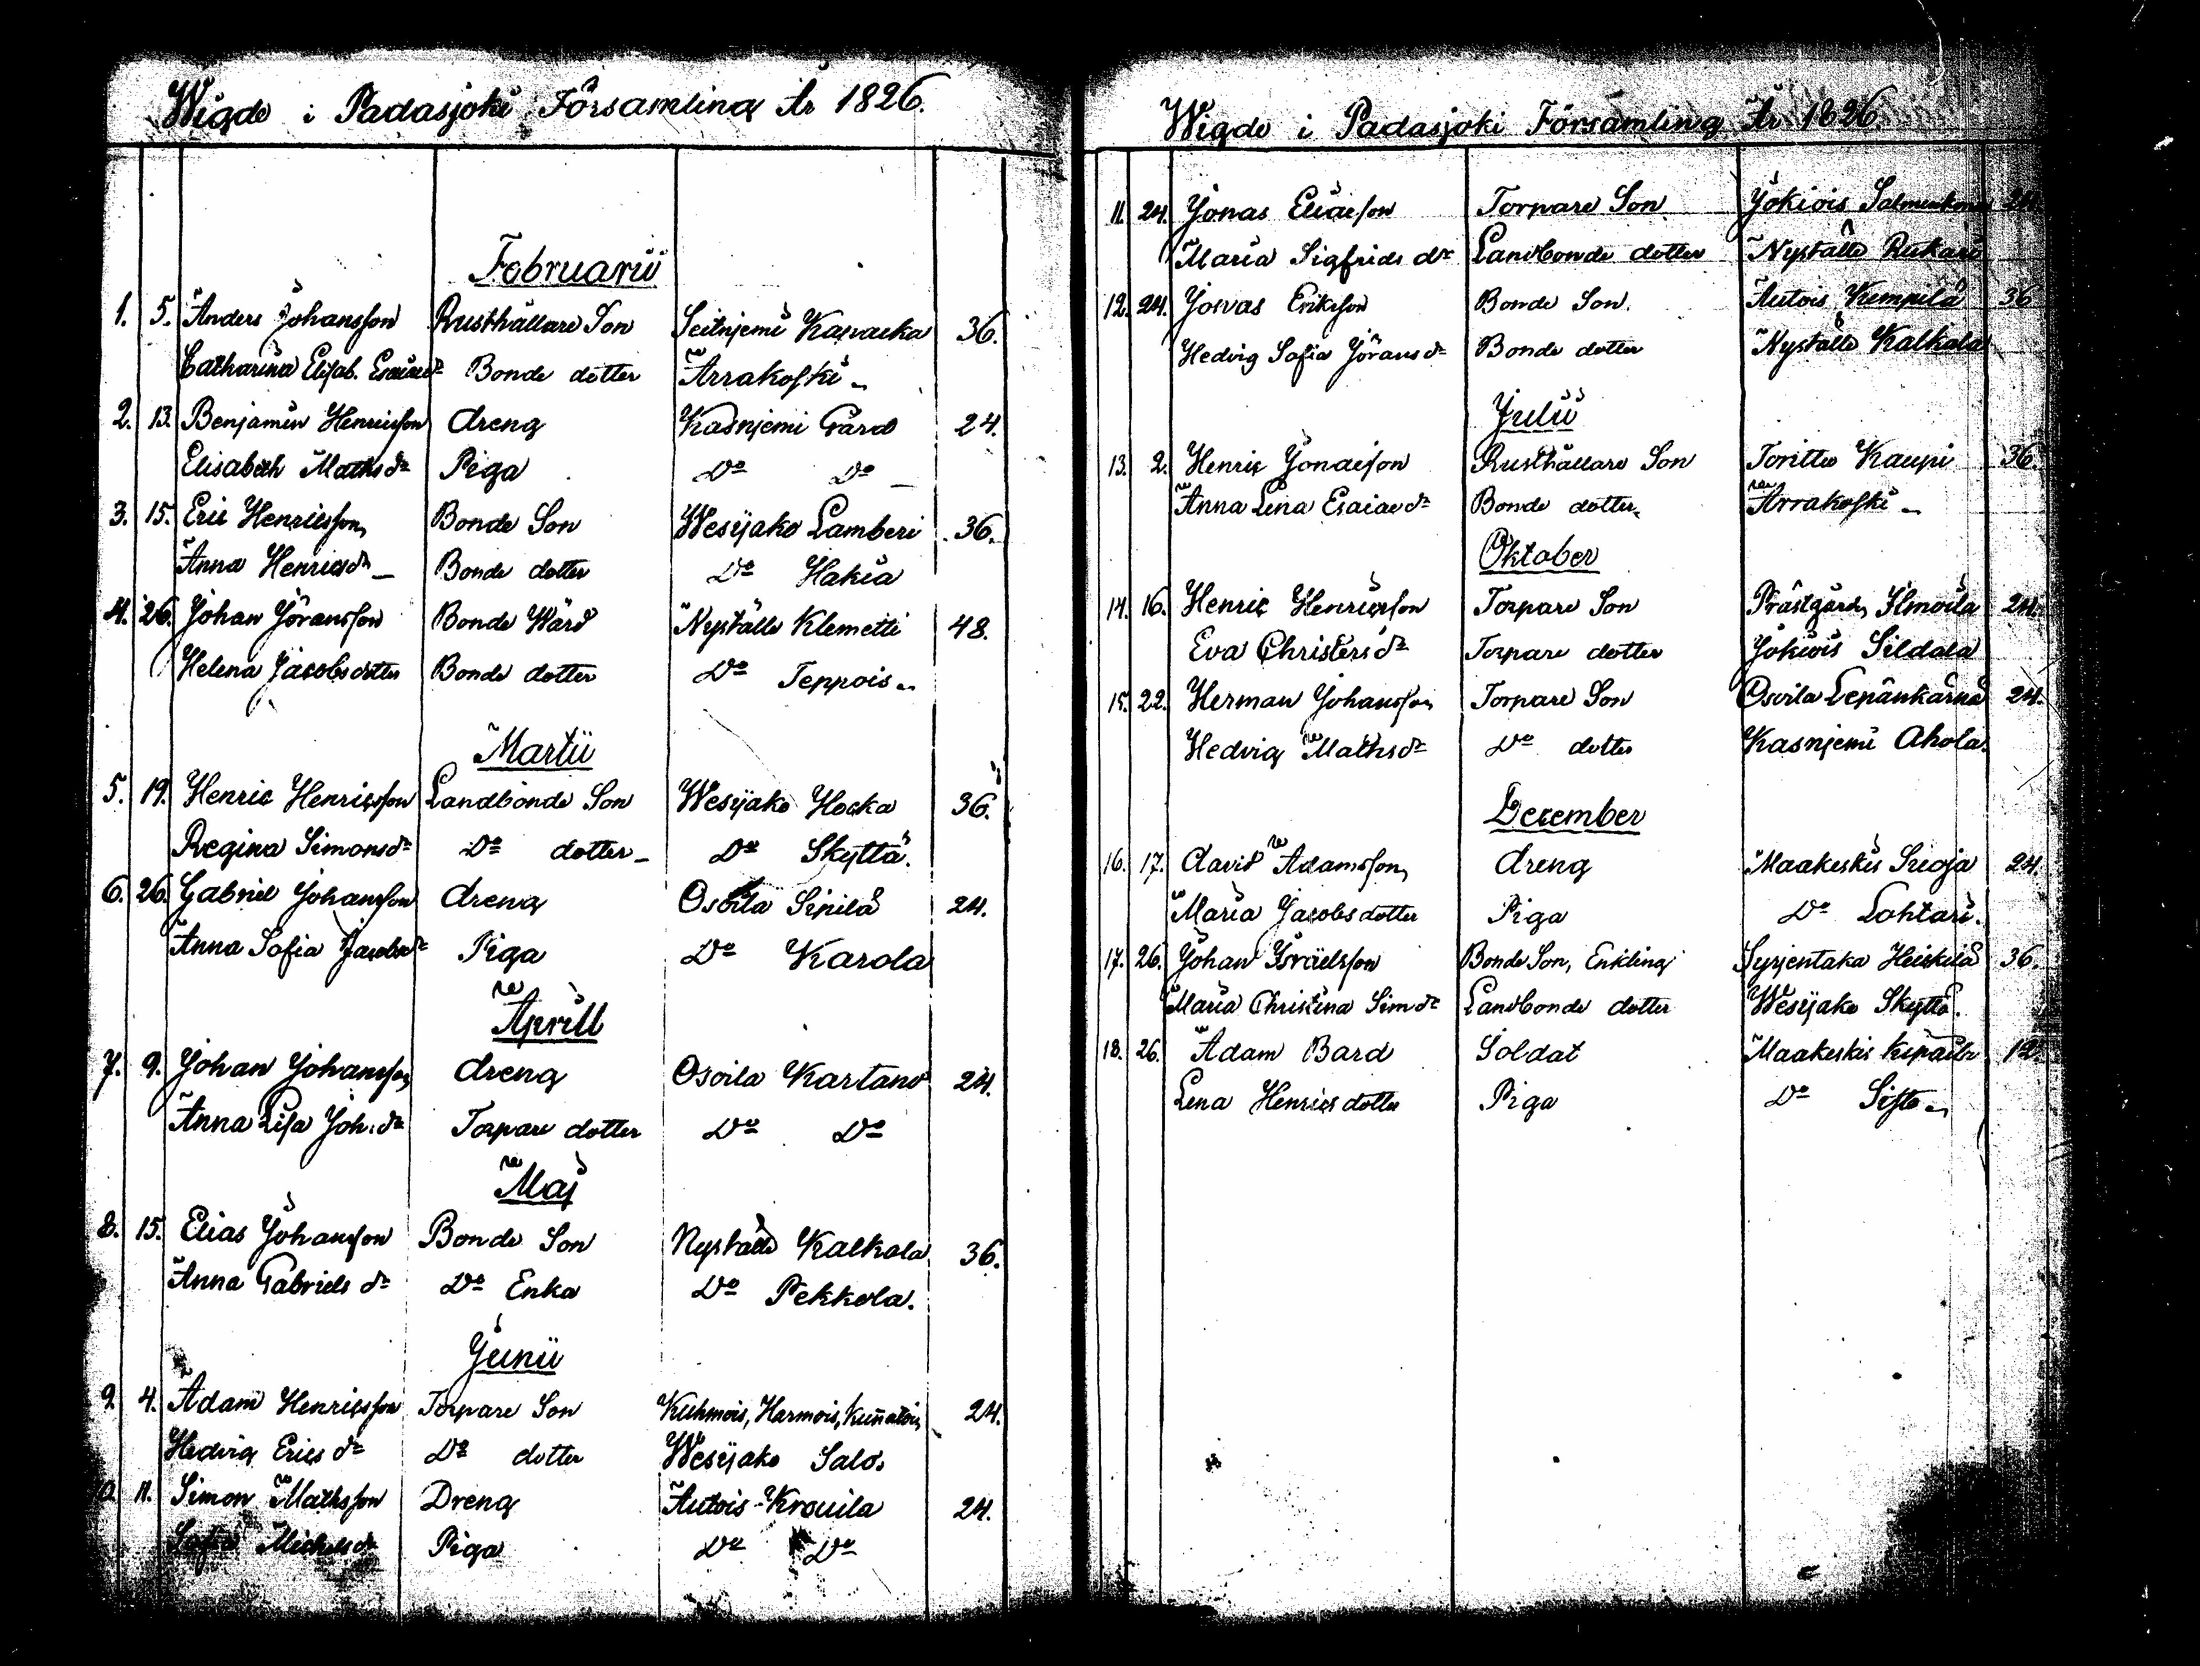 Wigde i Padasjoki Församling År 1826.
Februarii
1. 5. Anders Johansson Rusthållare Son Seitnjemi Kaparka 36.
Catharina Elisab. Esaiaed:r Bonde dotter Arrakoski
2. 13. Benjamin Henricsson dreng Kasnjemi Gård 24.
Elisabeth Mathsd:r Piga D:o D:o
3. 15. Eric Henricsson Bonde Son Wesijako Lamberi 36.
Anna Henricsd:r Bonde dotter D:o Hakia
4. 26. Johan Göransson Bonde Wärd Nystälä Klemetti 48.
Helena Jacobsdotter Bonde dotter D:o Teppois
Martii
5. 19. Henric Henricsson Landbonde Son Wesijako Hocka 36.
Regina Simonsd:r D:o dotter D:o Skyttä.
6. 26. Gabriel Johansson dreng Osoila Sipilä 24.
Anna Sofia Jacobsd:r Piga D:o Karola
Aprill
7. 9. Johan Johansson dreng Osoila Kartano 24.
Anna Lisa Joh:d:r Torpare dotter D:o D:o
Maj
8. 15. Elias Johansson Bonde Son Nystälä Kalkola 36.
Anna Gabriels d:r D:o Enka D:o Pekkola.
Junii
9. 4. Adam Henricsson Torpare Son Kuhmois, Harmois, 24.
Hedvig Erics d:r D:o dotter Wesijako Salo.
10. 11. Simon Mathsson Dreng Autois Krouila 24.
Sofia Michelsd:r Piga D:o D:o
Wigde i Padasjoki Församling År 1826.
11. 24. Jonas Eliaesson Torpare Son Jokiois 24
Maria Sigfrids d:r Landbonde dotter Nystälä Rukari
12. 24. Jonas Ericsson Bonde Son. Autois Kempilä 36
Hedvig Sofia Jöransd:r Bonde dotter Nystälä Kalkola
Julii
13. 2. Henric Jonaesson Rusthållare Son Toritto Kaupi 36.
Anna Lena Esaiaed:r Bonde dotter Arrakoski
Oktober
14. 16. Henric Henricsson Torpare Son Prästgårds Ilmoila 24.
Eva Christersd:r Torpare dotter Jokiois Sildala
15. 22. Herman Johansson Torpare Son Osoila Lepänkärnä 24.
Hedvig Mathsd:r D:o dotter Kasnjemi Ahola.
December
16. 17. David Adamsson dreng Maakeskis Seoja 24.
Maria Jacobsdotter Piga D:o Lohtari.
17. 26. Johan Israelsson Bonde Son, Enkling Syrjentaka Heickilä 36.
Maria Christina Sim d:r Landbonde dotter Wesijako Skyttä.
18. 26. Adam Bard Soldat Maakeskis 12.
Lena Henricsdotter Piga D:o Sisto